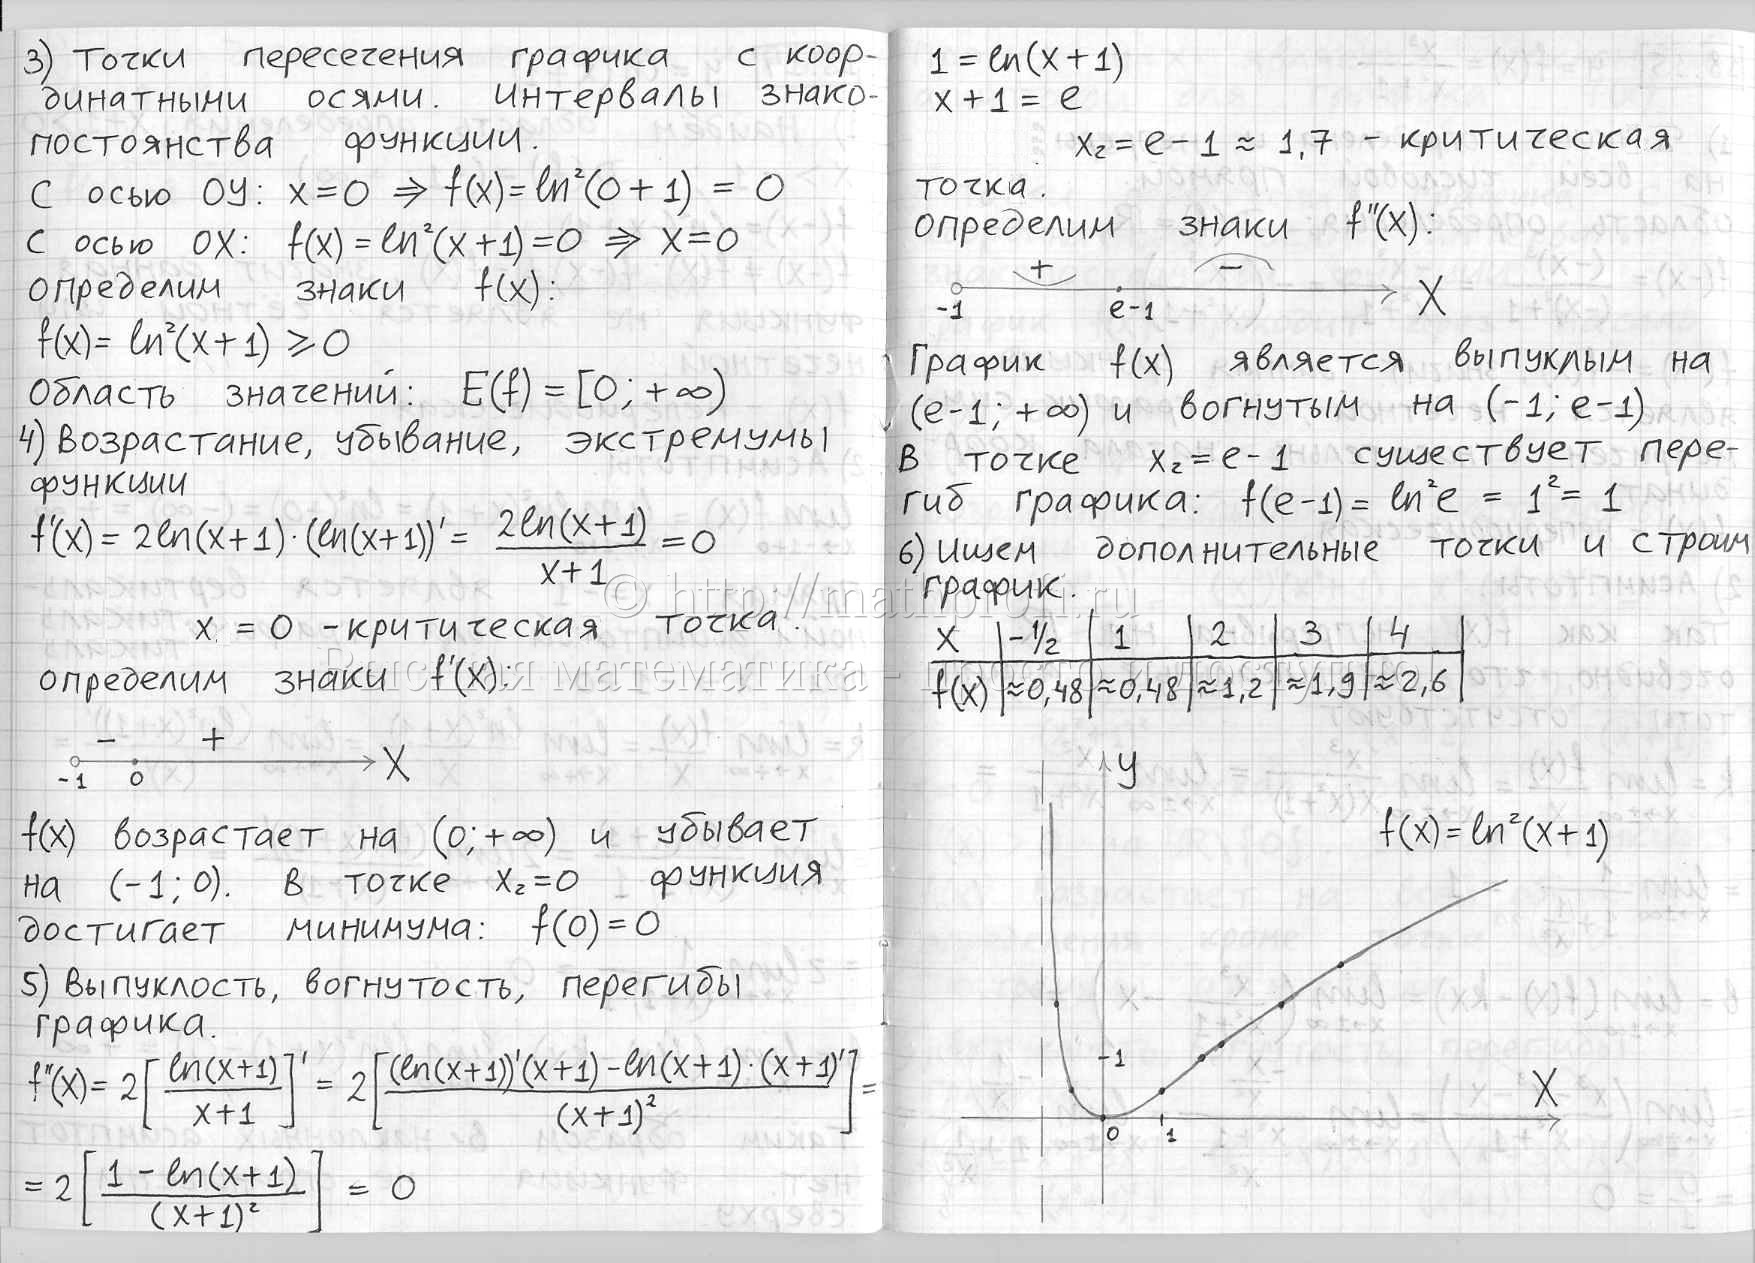 3) Точки пересечения графика с коор-
динатными осями. Интервалы знако-
постоянства функции.
С осью OY: x=0 ⇒ f(x)=ln²(0+1) = 0
С осью OX: f(x)=ln²(x+1)=0 ⇒ x=0
Определим знаки f(x):
f(x)= ln²(x+1) ⩾ 0
Область значений: E(f)=[0;+∞)
4) Возрастание, убывание, экстремумы
функции
f'(x)= 2ln(x+1)·(ln(x+1))' = 2ln(x+1)/(x+1) = 0
x = 0 - критическая точка.
Определим знаки f'(x):
- +
-1 0 X
f(x) возрастает на (0;+∞) и убывает
на (-1;0). В точке x₂=0 функция
достигает минимума: f(0)=0
5) Выпуклость, вогнутость, перегибы
графика.
f''(x)= 2[ln(x+1)/(x+1)]' = 2[((ln(x+1))'(x+1)-ln(x+1)·(x+1)')/(x+1)²] =
= 2[(1-ln(x+1))/(x+1)²] = 0
1=ln(x+1)
x+1= e
x₂=e-1≈1,7 - критическая
точка.
Определим знаки f''(x):
+ -
-1 e-1 X
График f(x) является выпуклым на
(e-1;+∞) и вогнутым на (-1; e-1)
В точке x₂=e-1 существует пере-
гиб графика: f(e-1)= ln²e = 1²= 1
6) Ищем дополнительные точки и строим
график.
X | -1/2 | 1 | 2 | 3 | 4
f(x) | ≈0,48 | ≈0,48 | ≈1,2 | ≈1,9 | ≈2,6
y
f(x)=ln²(x+1)
1
X
0 1
© http://mathprofi.ru
Высшая математика - просто и доступно!